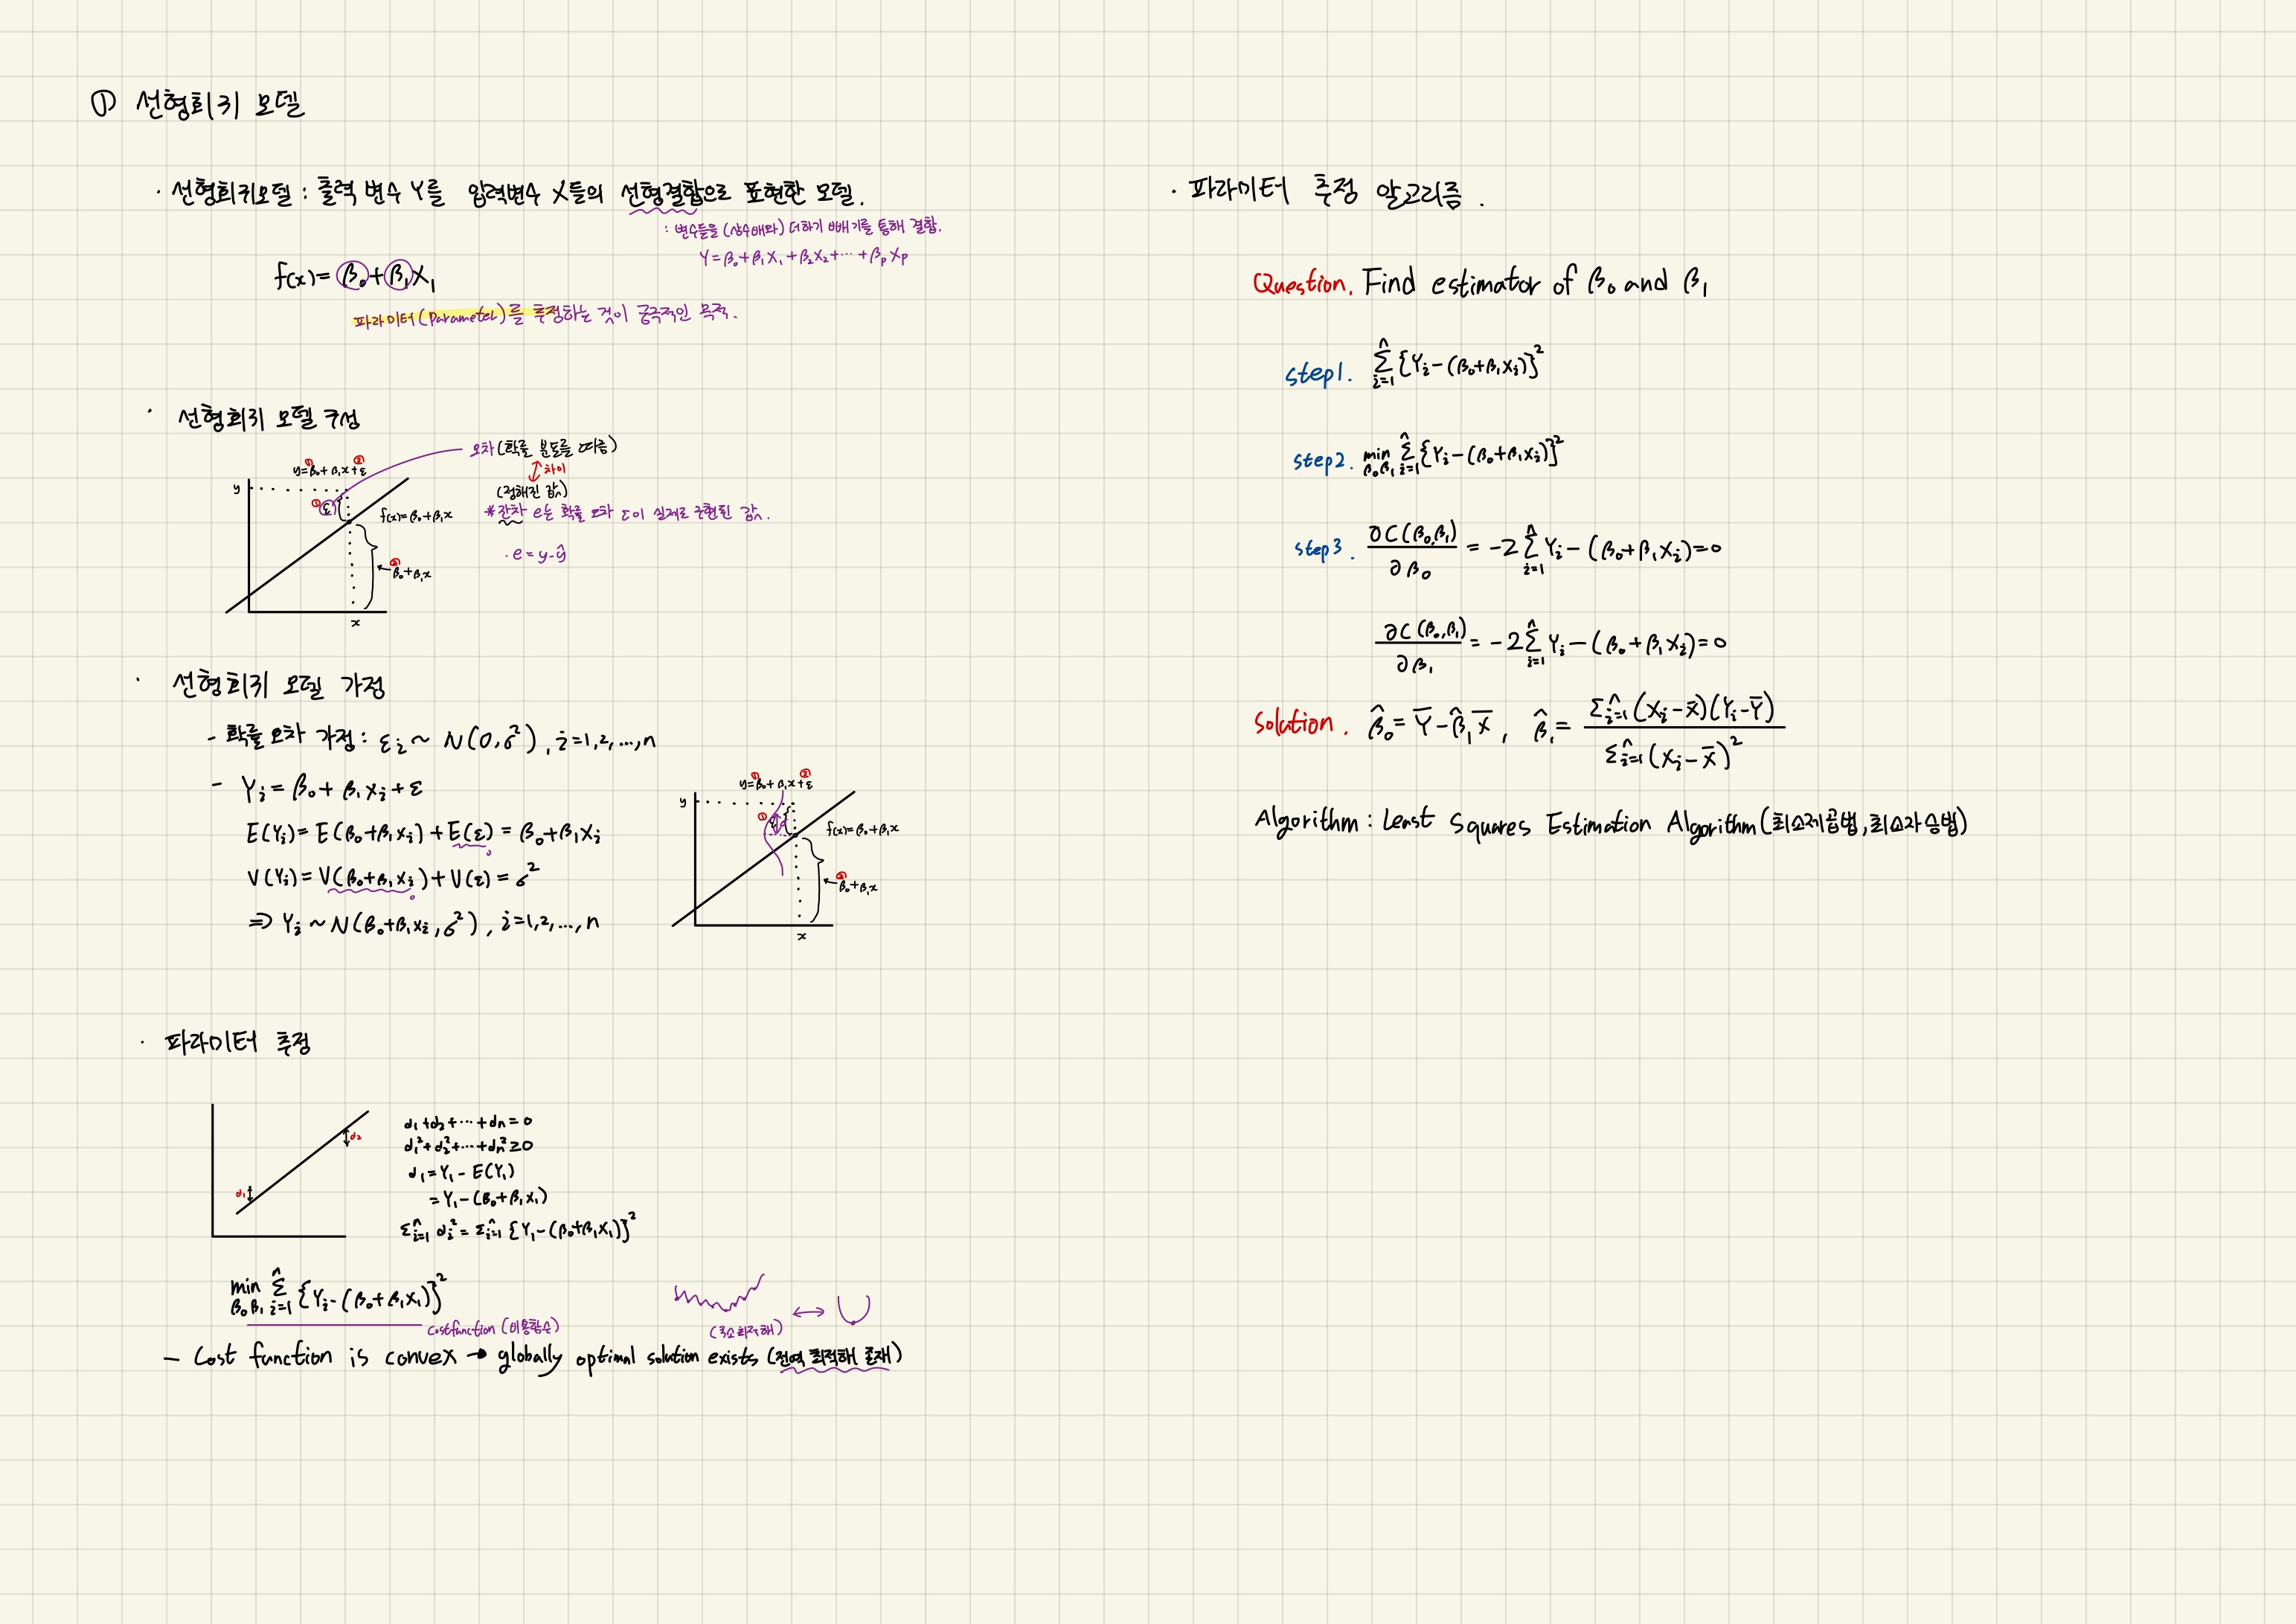 ① 선형회귀 모델
· 선형회귀모델 : 출력 변수 Y를 입력변수 X들의 선형결합으로 표현한 모델.
: 변수들을 (상수배와) 더하기 빼기를 통해 결합.
Y = β₀ + β₁X₁ + β₂X₂ + ··· + βₚXₚ
f(x) = β₀ + β₁X₁
파라미터(parameter)를 추정하는 것이 궁극적인 목적.
· 선형회귀 모델 구성
오차 (확률 분포를 따름)
차이
(정해진 값)
* 잔차 e는 확률 오차 ε이 실제로 구현된 값.
· e = y - ŷ
① ②
y = β₀ + β₁x + ε
y
① ε
f(x) = β₀ + β₁x
②
β₀ + β₁x
x
· 선형회귀 모델 가정
- 확률 오차 가정 : εᵢ ~ N(0, σ²), i = 1, 2, ..., n
- Yᵢ = β₀ + β₁Xᵢ + ε
E(Yᵢ) = E(β₀ + β₁Xᵢ) + E(ε) = β₀ + β₁Xᵢ
0
V(Yᵢ) = V(β₀ + β₁Xᵢ) + V(ε) = σ²
0
⇒ Yᵢ ~ N(β₀ + β₁Xᵢ, σ²), i = 1, 2, ..., n
① ②
y = β₀ + β₁x + ε
y
①
f(x) = β₀ + β₁x
②
β₀ + β₁x
x
· 파라미터 추정
d₂
d₁
d₁ + d₂ + ··· + dn = 0
d₁² + d₂² + ··· + dn² ≥ 0
d₁ = Y₁ - E(Y₁)
= Y₁ - (β₀ + β₁X₁)
Σⁿᵢ₌₁ dᵢ² = Σⁿᵢ₌₁ {Y₁ - (β₀ + β₁X₁)}²
min β₀β₁ Σⁿᵢ₌₁ {Yᵢ - (β₀ + β₁X₁)}²
cost function (비용함수)
(국소최적해) ↔
- Cost function is convex → globally optimal solution exists (전역 최적해 존재)
· 파라미터 추정 알고리즘.
Question. Find estimator of β₀ and β₁
step1. Σⁿᵢ₌₁ {Yᵢ - (β₀ + β₁Xᵢ)}²
step2. min β₀β₁ Σⁿᵢ₌₁ {Yᵢ - (β₀ + β₁Xᵢ)}²
step3. ∂C(β₀,β₁)/∂β₀ = -2 Σⁿᵢ₌₁ Yᵢ - (β₀ + β₁Xᵢ) = 0
∂C(β₀,β₁)/∂β₁ = -2 Σⁿᵢ₌₁ Yᵢ - (β₀ + β₁Xᵢ) = 0
Solution. β̂₀ = Ȳ - β̂₁X̄, β̂₁ = Σⁿᵢ₌₁(Xᵢ - X̄)(Yᵢ - Ȳ) / Σⁿᵢ₌₁(Xᵢ - X̄)²
Algorithm : Least Squares Estimation Algorithm (최소제곱법, 최소자승법)